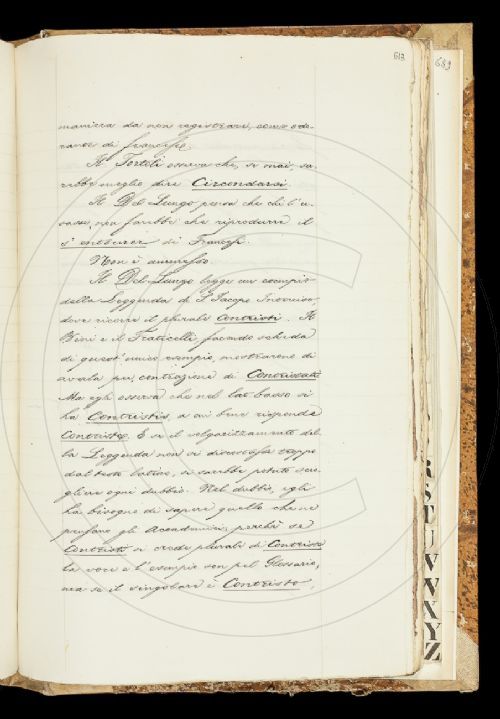 613
689
maniera da non registrare, come odo-
rante di francese.
Il Tortoli osserva che, se mai, sa-
rebbe meglio dire Circondarsi.
Il Del Lungo pensa che chi l'u-
sasse, non farebbe che riprodurre il
s'entourer di Francesi.
Non è ammesso.
Il Del Lungo legge un esempio
della Leggenda di S. Jacopo Interciso,
dove ricorre il plurale Contristi. Il
Bini e il Fraticelli facendo scheda
di quest'unico esempio, mostrarono di
averla per contrazione di Contristati.
Ma egli osserva che nel lat. basso si
ha Contristis, a cui bene risponde
Contristo. E se il volgarizzamento del-
la Leggenda non si discostasse troppo
dal testo latino, si sarebbe potuto scio-
gliere ogni dubbio. Nel dubbio, egli
ha bisogno di sapere quello che ne
pensano gli Accademici, perchè se
Contristi si crede plurale di Contristo
la voce e l'esempio son pel Glossario,
ma se il singolare è Contristo,
R
S
T
U
V
W
X
Y
Z